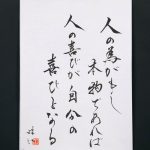 人の為がもし
本物であれば
人の喜びが自分の
喜びとなる